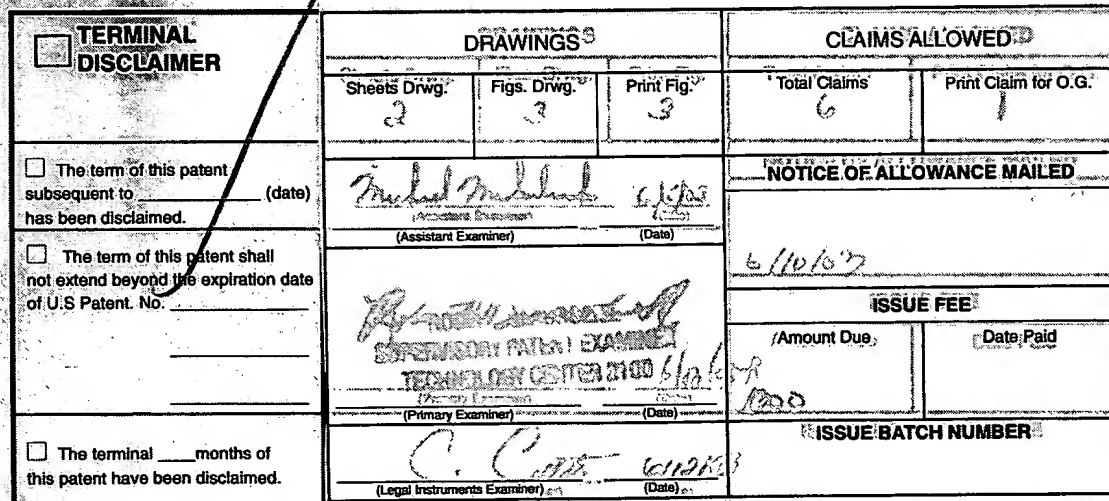 TERMINAL
DISCLAIMER
The term of this patent
subsequent to (date)
has been disclaimed.
The term of this patent shall
not extend beyond the expiration date
of U.S Patent. No.
The terminal months of
this patent have been disclaimed.
DRAWINGS
Sheets Drwg. Figs. Drwg. Print Fig.
2 3 3
(Assistant Examiner) (Date)
SUPERVISORY PATENT EXAMINER
TECHNOLOGY CENTER 2100
(Primary Examiner) (Date)
C.
(Legal Instruments Examiner) (Date)
CLAIMS ALLOWED
Total Claims Print Claim for O.G.
6 1
NOTICE OF ALLOWANCE MAILED
6/10/03
ISSUE FEE
Amount Due Date Paid
1300
ISSUE BATCH NUMBER